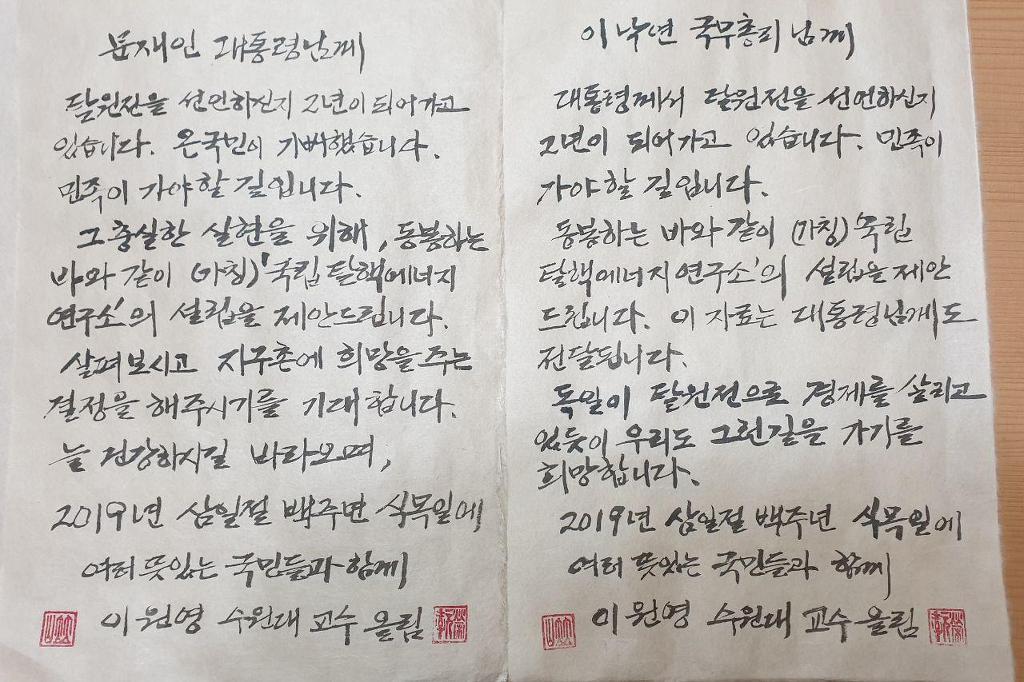 문재인 대통령님께
탈원전을 선언하신지 2년이 되어가고
있습니다. 온국민이 기뻐했습니다.
민족이 가야할 길입니다.
그 충실한 실현을 위해, 동봉하는
바와 같이 (가칭)'국립탈핵에너지
연구소'의 설립을 제안드립니다.
살펴보시고 지구촌에 희망을 주는
결정을 해주시기를 기대합니다.
늘 건강하시길 바라오며,
2019년 삼일절 백주년 식목일에
여러 뜻있는 국민들과 함께
이원영 수원대 교수 올림
이낙연 국무총리님께
대통령께서 탈원전을 선언하신지
2년이 되어가고 있습니다. 민족이
가야할 길입니다.
동봉하는 바와 같이 (가칭)'국립
탈핵에너지연구소'의 설립을 제안
드립니다. 이 자료는 대통령님께도
전달됩니다.
독일이 탈원전으로 경제를 살리고
있듯이 우리도 그런길을 가기를
희망합니다.
2019년 삼일절 백주년 식목일에
여러 뜻있는 국민들과 함께
이원영 수원대 교수 올림